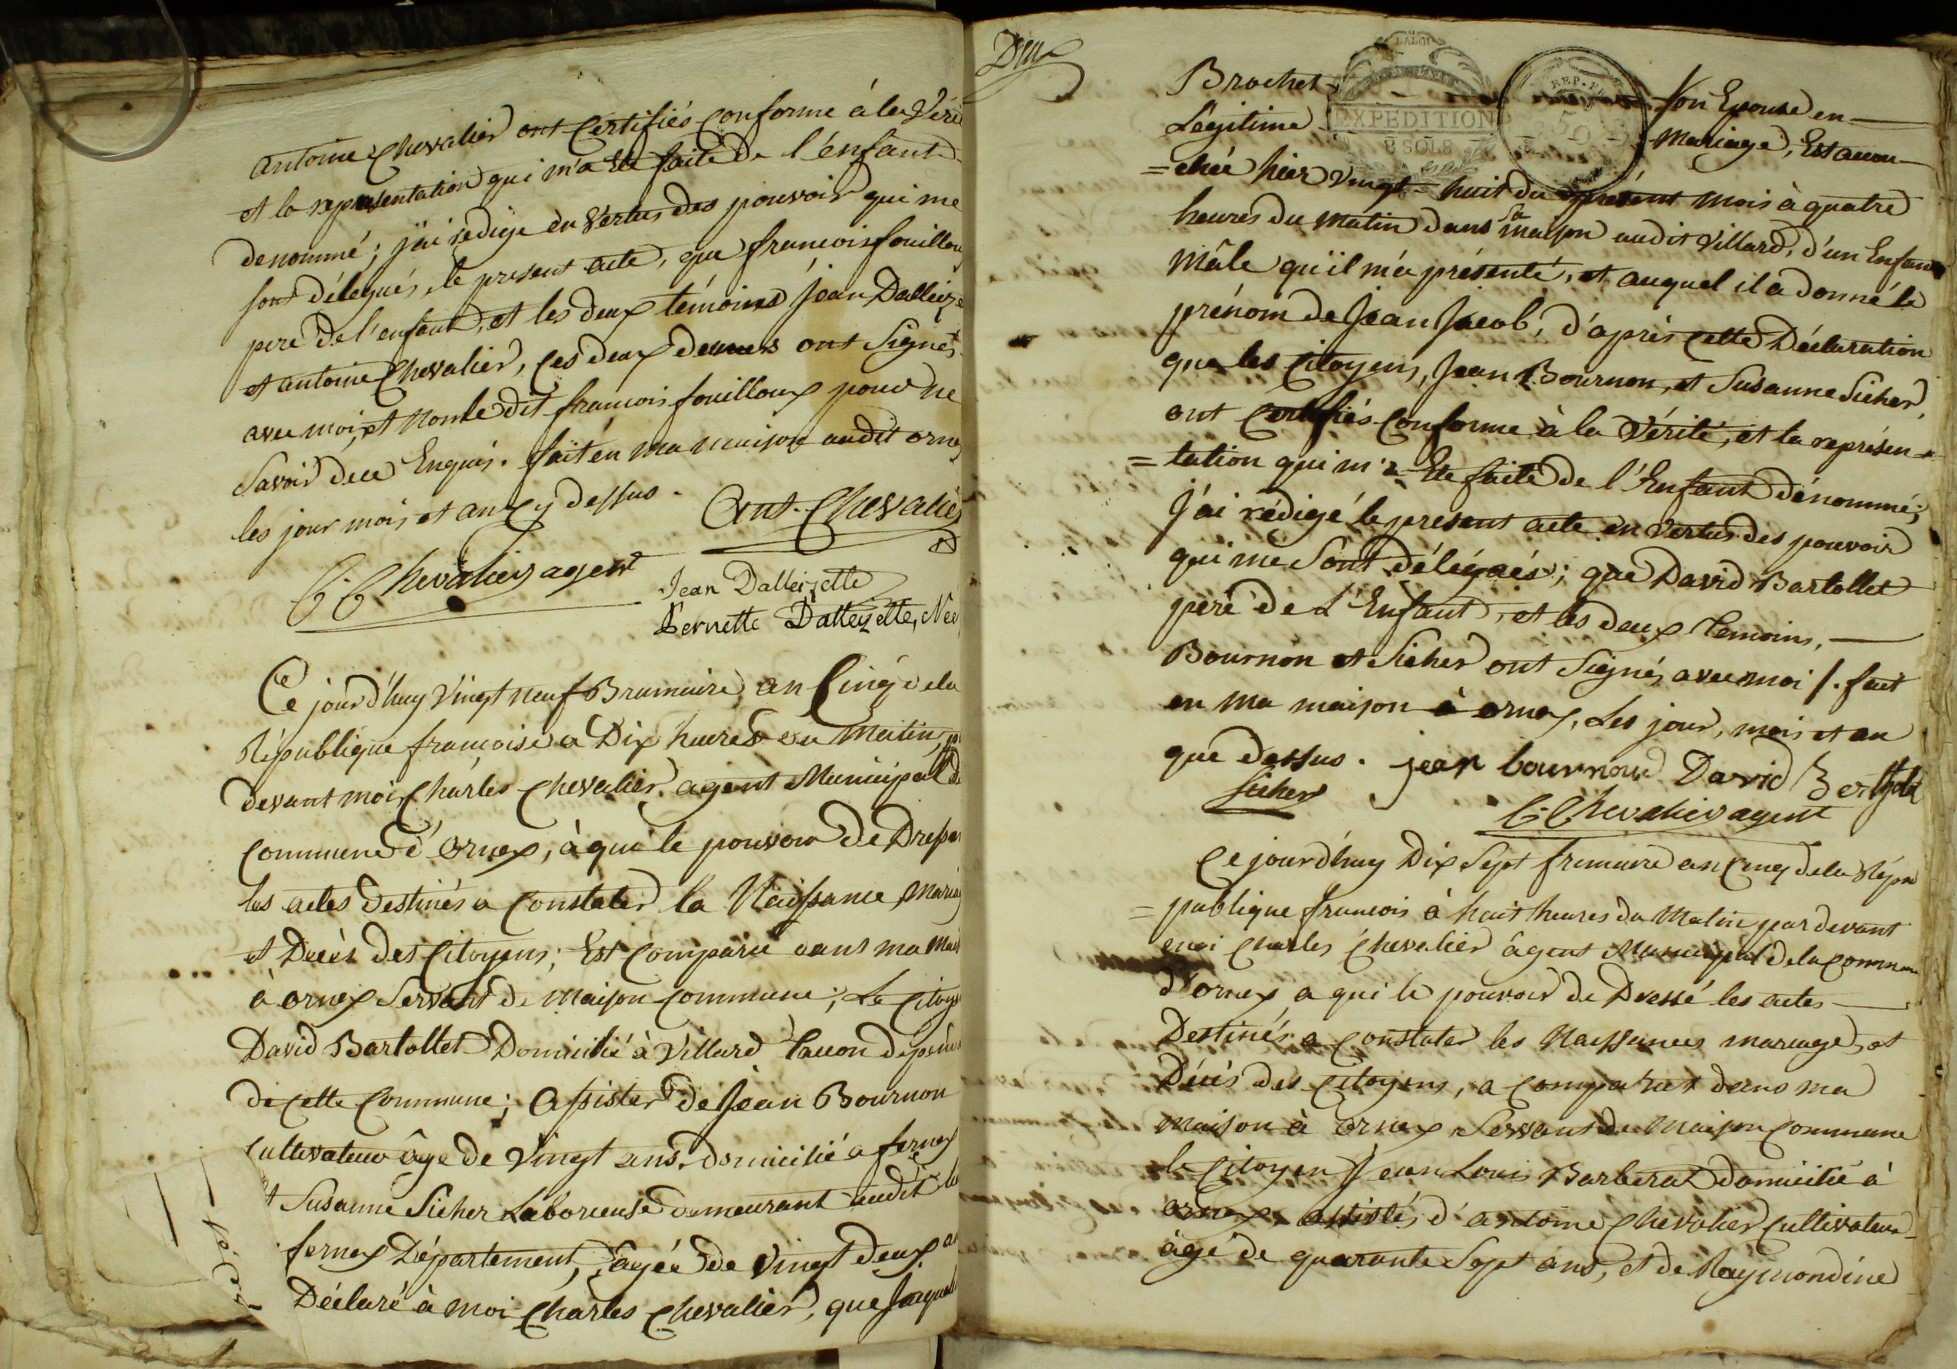 antoine chevalier ont certifiés conforme à la Véri
et la representation qui m'a Ete faite de l'enfant
denommé; j'ai redigé en Vertus des pouvoir qui me
sont délegués, le present acte, que francois fouilloux
pere de l'enfant, et les deux témoins Jean Dalleizette
et antoine Chevalier, ces deux derniers ont Signés
avec moi, et Non le dit francois fouilloux pour ne
Savoir de ce Enquis. fait en ma maison audit ornex
les jour mois et an cy dessus.
Ant. Chevalier
C. Chevalier agent
Jean Dalleizette
Pernette Dalleizette, Née
Ce jourd'huy Vingt neuf Brumaire, an Cinq de la
République françoise a Dix heures du Matin, p
devant moi Charles Chevalier agent Municipal d
commune d'Ornex, à qui le pouvoir de Dresser
les actes Destinés a Constater la Naissance, Mariag
et Décès des Citoyens; Est Comparu dans ma Mais
à ornex Servant de Maison commune; Le Citoye
David Bartollet Domicilié à Villard Tacon dépend
de cette Commune; Assister de Jean Bournon
cultivateur âge de Vingt ans domicilié a fernex
et Susanne Sicher Laborieuse demeurant audit
fernex Département, agée de Vingt deux a
Déclaré à moi Charles Chevalier, que Jaqu
Deux
EXPEDITION
8 SOLS
REP.
50
Brochet son Epouse en
Légitime Mariage, Est accou
= chée hier vingt = huit du présent mois à quatre
heures du matin dans sa maison audit Villard, d'un Enfant
Mâle qu'il m'a présenté, et auquel il a donné le
prénom de Jean Jacob, d'après cette Déclaration
que les Citoyens, Jean Bournon, et Susanne Sicher
ont certifiés conforme à la Vérité, et la représen=
= tation qui m'a Ete faite de l'Enfant dénommé;
J'ai rédigé le present acte en Vertus des pouvoir
qui me Sont délégués; que David Bartollet
pere de L'Enfant, et les deux temoins,
Bournon et Sicher ont Signés avec moi /. fait
en Ma maison à ornex, Les jour, mois et an
que dessus. jean bournoud David Berthole
Sicher
C. Chevalier agent
Ce jourd'huy Dix Sept frimaire an Cinq de la Répu
= publique francois à huit heures du Matin par devant
moi Charles Chevalier âgent Municipal de la commune
d'ornex a qui le pouvoir de Dressé les actes
Destinés a constater les Naissances mariage, et
Décés des Citoyens, a comparu dans ma
Maison à ornex Servant de Maison commune
le Citoyen Jean Louis Barberat Domicilié à
ornex assistés d'antoine Chevalier cultivateur
âgé de quarante Sept ans, et de Raymondine